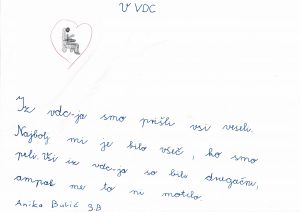 V VDC
Iz vdc-ja smo prišli vsi veseli.
Najbolj mi je bilo všeč, ko smo
peli. Vsi iz vdc-ja so bili drugačni,
ampak me to ni motilo.
Anika Bulić 3.B